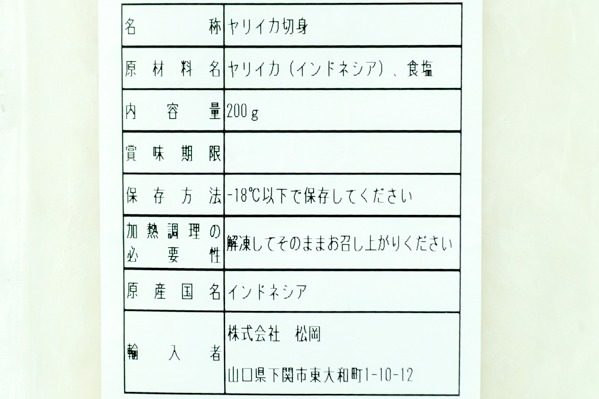 名称 ヤリイカ切身
原材料名 ヤリイカ（インドネシア）、食塩
内容量 200ｇ
賞味期限
保存方法 -18℃以下で保存してください
加熱調理の
必要性 解凍してそのままお召し上がりください
原産国名 インドネシア
輸入者 株式会社　松岡
山口県下関市東大和町1-10-12